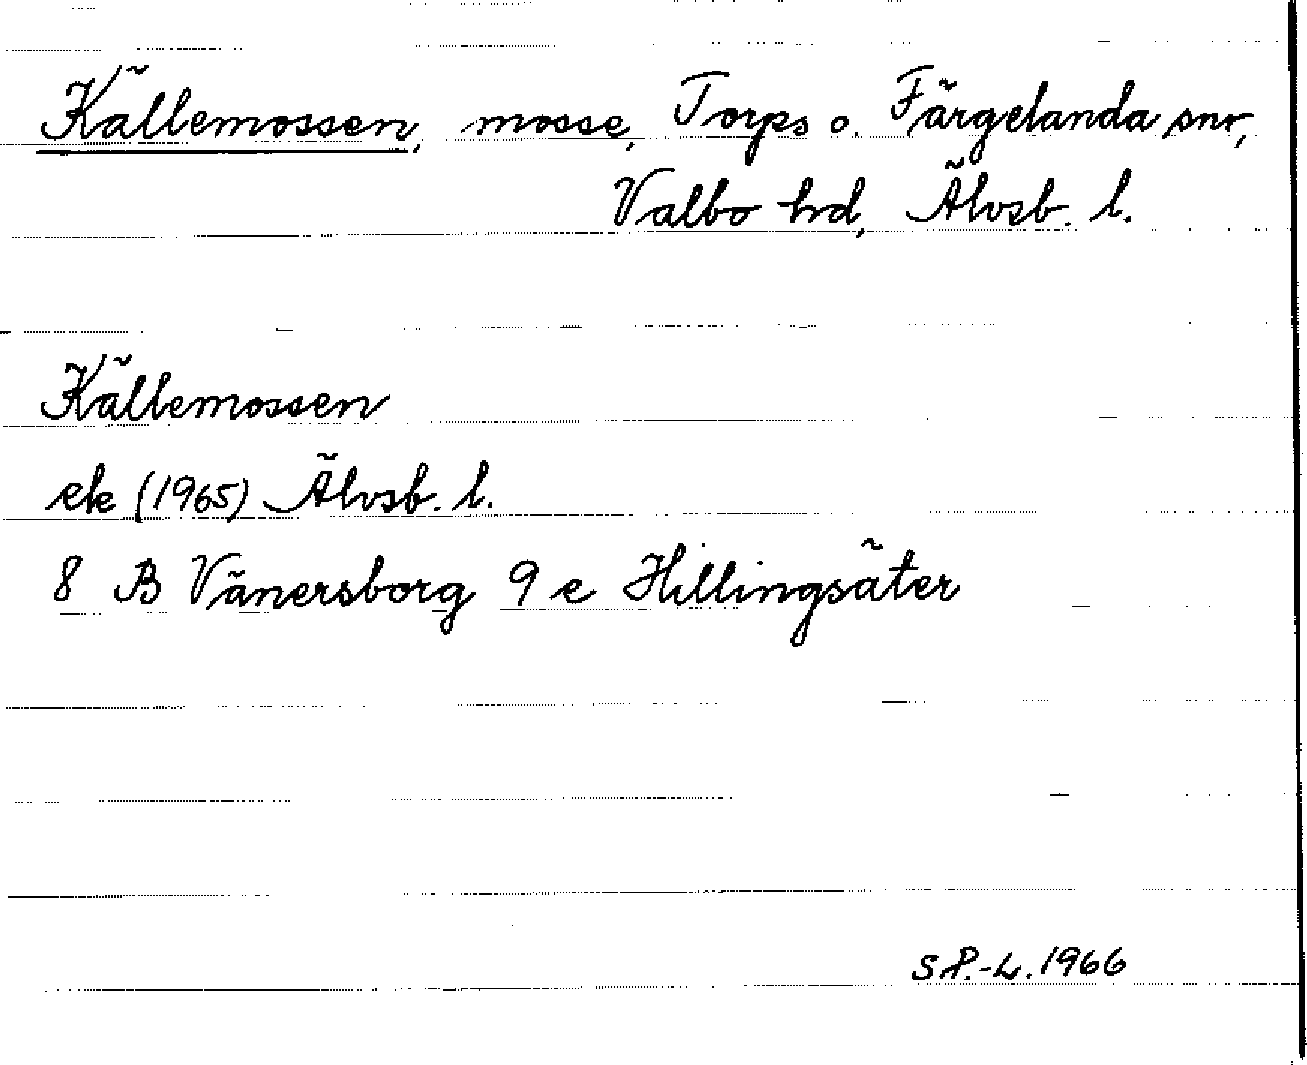 Källemossen, mosse, Torps o. Färgelanda snr,
Valbo hd, Älvsb. l.
Källemossen
ek (1965) Älvsb. l.
8 B Vänersborg 9 e Hillingsäter
S.P.-L. 1966